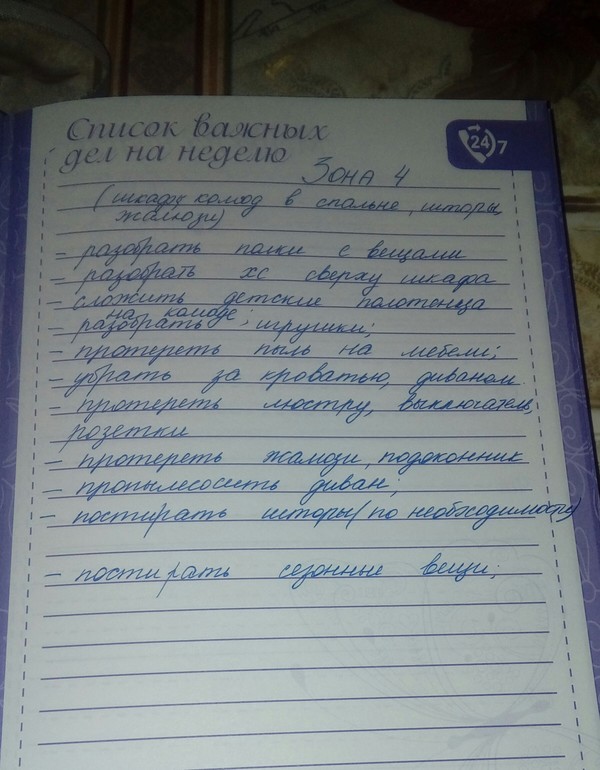 Список важных
дел на неделю
24 7
Зона 4
(шкафы комод в спальне, шторы,
жалюзи)
- разобрать полки с вещами
- разобрать хс сверху шкафа
- сложить детские полотенца
на комоде;
- разобрать игрушки;
- протереть пыль на мебели;
- убрать за кроватью, диваном
- протереть люстру, выключатель,
розетки
- протереть жалюзи, подоконник
- пропылесосить диван;
- постирать шторы (по необходимости)
- постирать сезонные вещи;